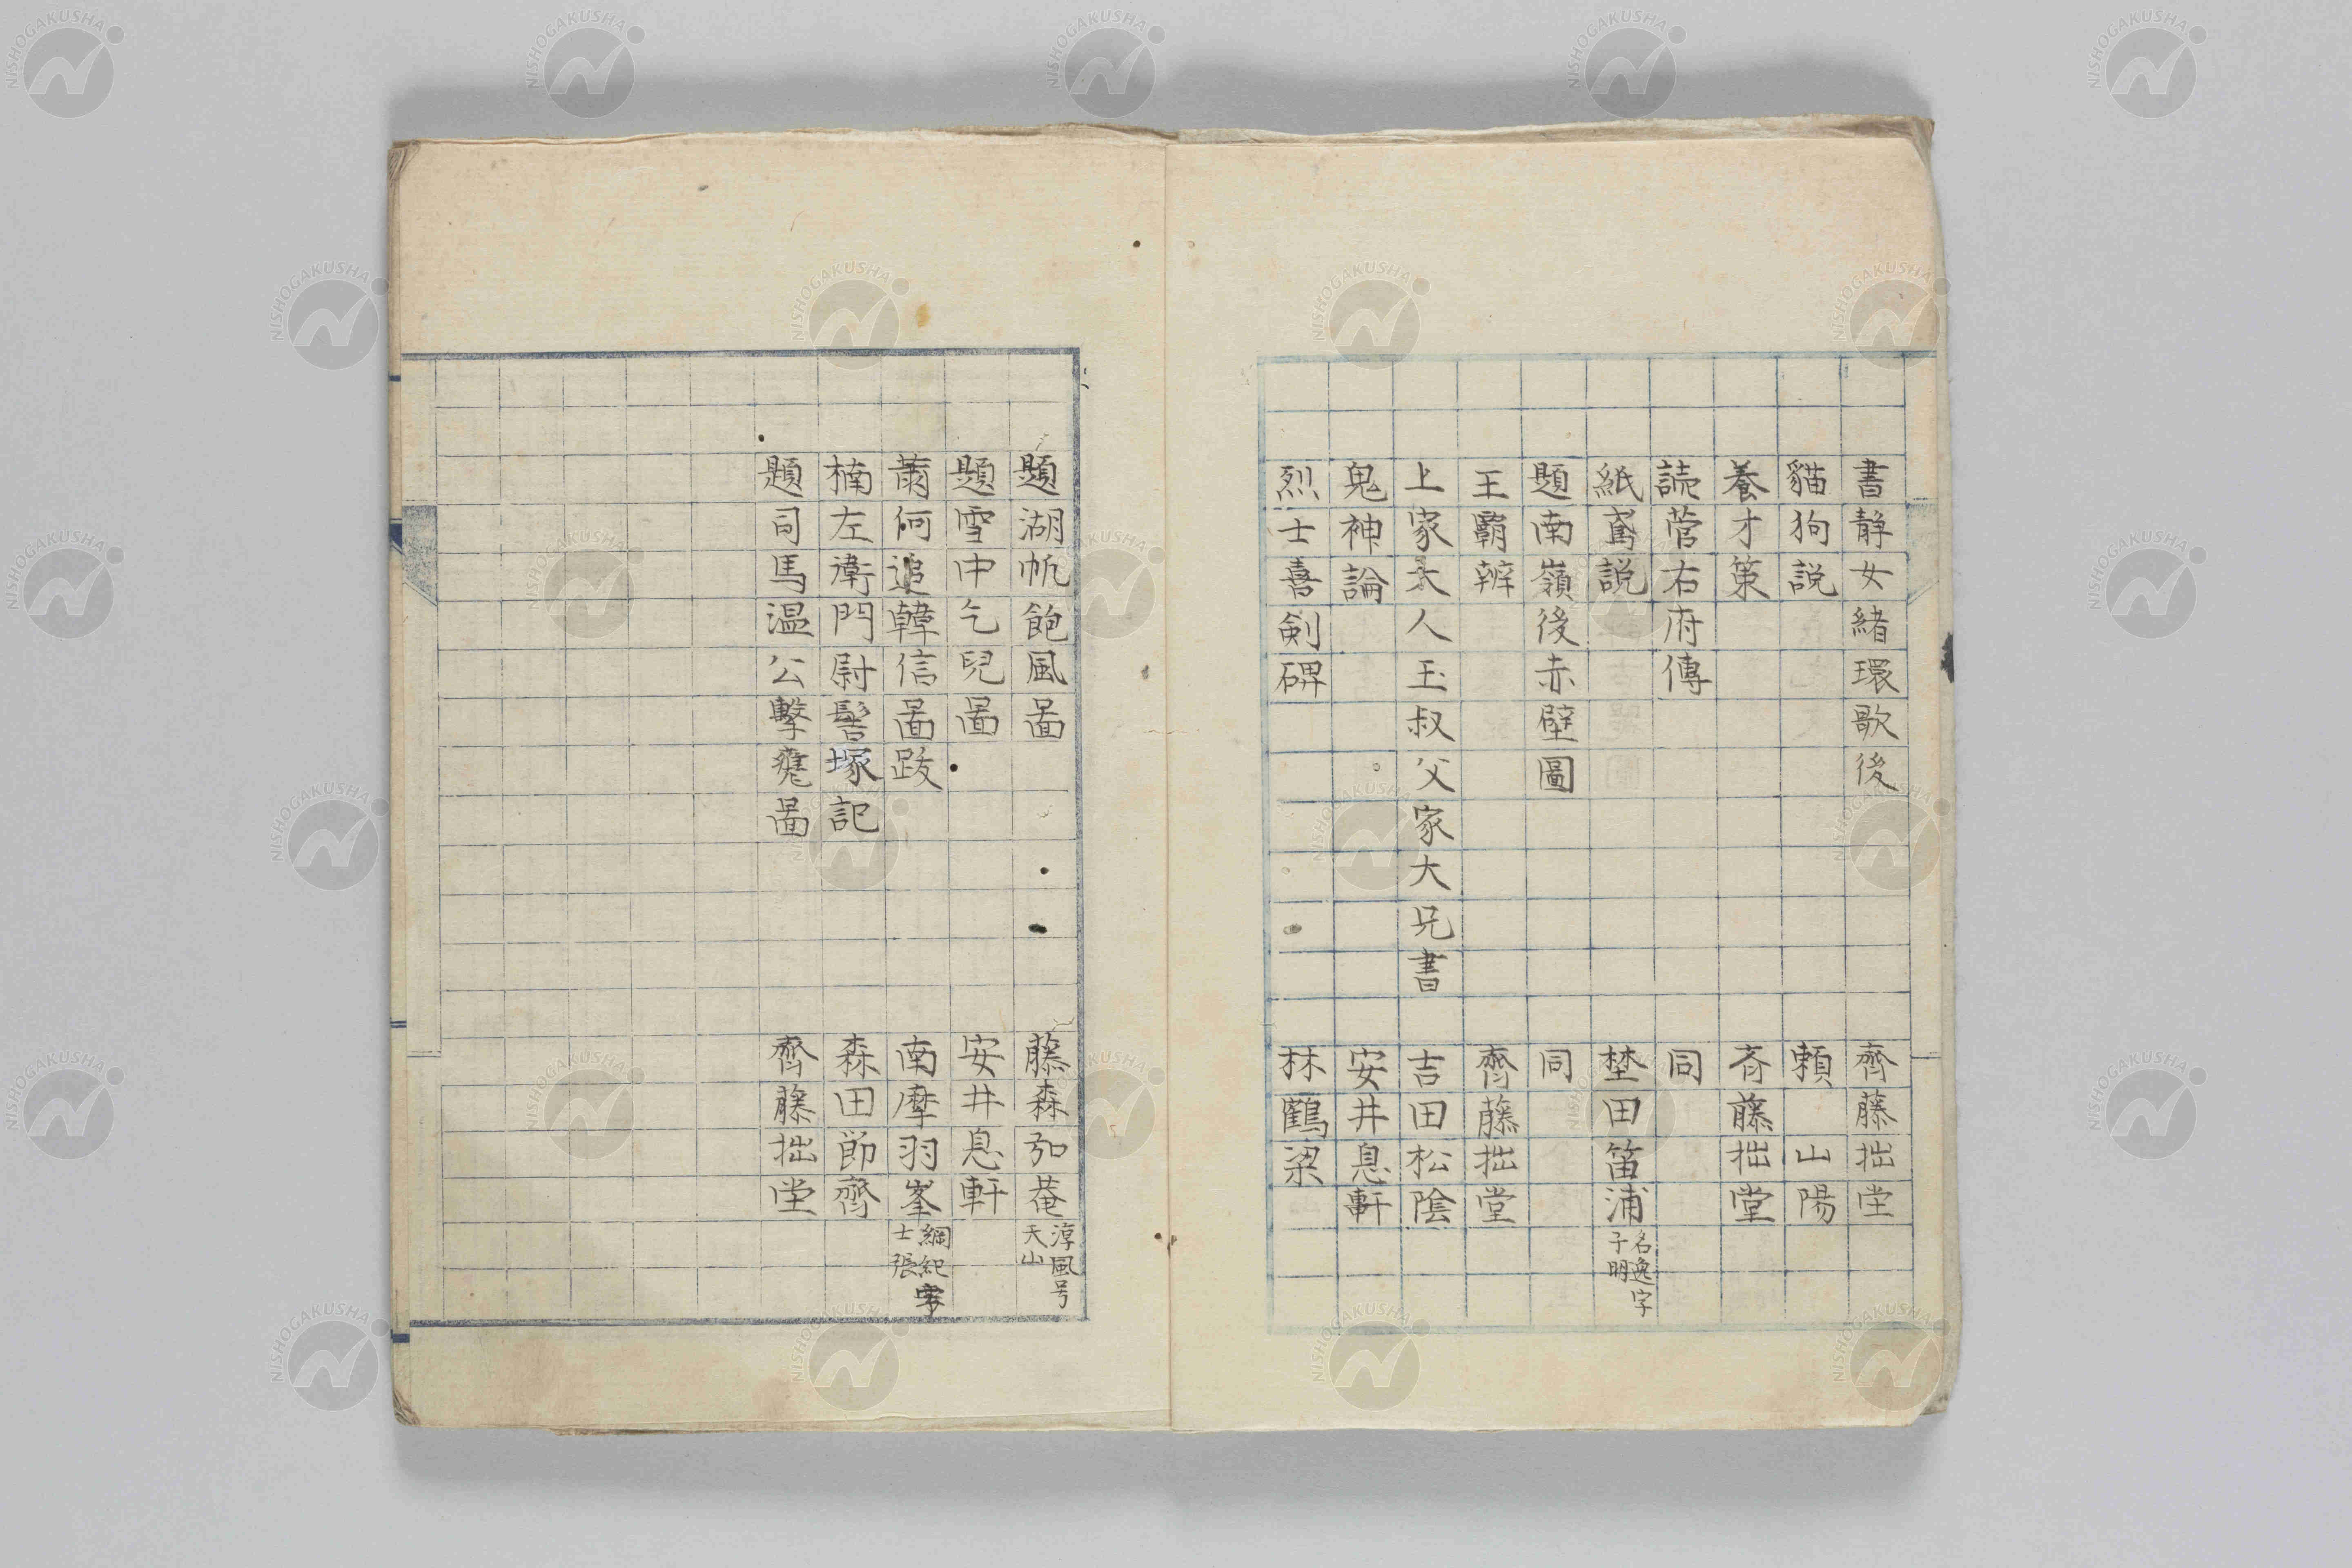 書静女緒環歌後 齊藤拙堂
貓狗説 頼山陽
養才策 斉藤拙堂
読菅右府傳 同
紙鳶説 埜田笛浦 名逸字子明
題南嶺後赤壁圖 同
王覇辨 齊藤拙堂
上家大人玉叔父家大兄書 吉田松陰
鬼神論 安井息軒
烈士喜剣碑 林鶴梁
題湖帆飽風啚 藤森弘菴 淳風号天山
題雪中乞兒啚 安井息軒
蕭何追韓信啚跋 南摩羽峯 綱紀字士張
楠左衛門尉髻塚記 森田節齊
題司馬温公擊甕啚 齊藤拙堂
NISHOGAKUSHA